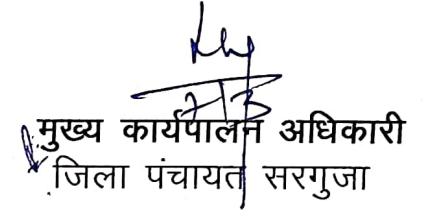 मुख्य कार्यपालन अधिकारी
जिला पंचायत सरगुजा